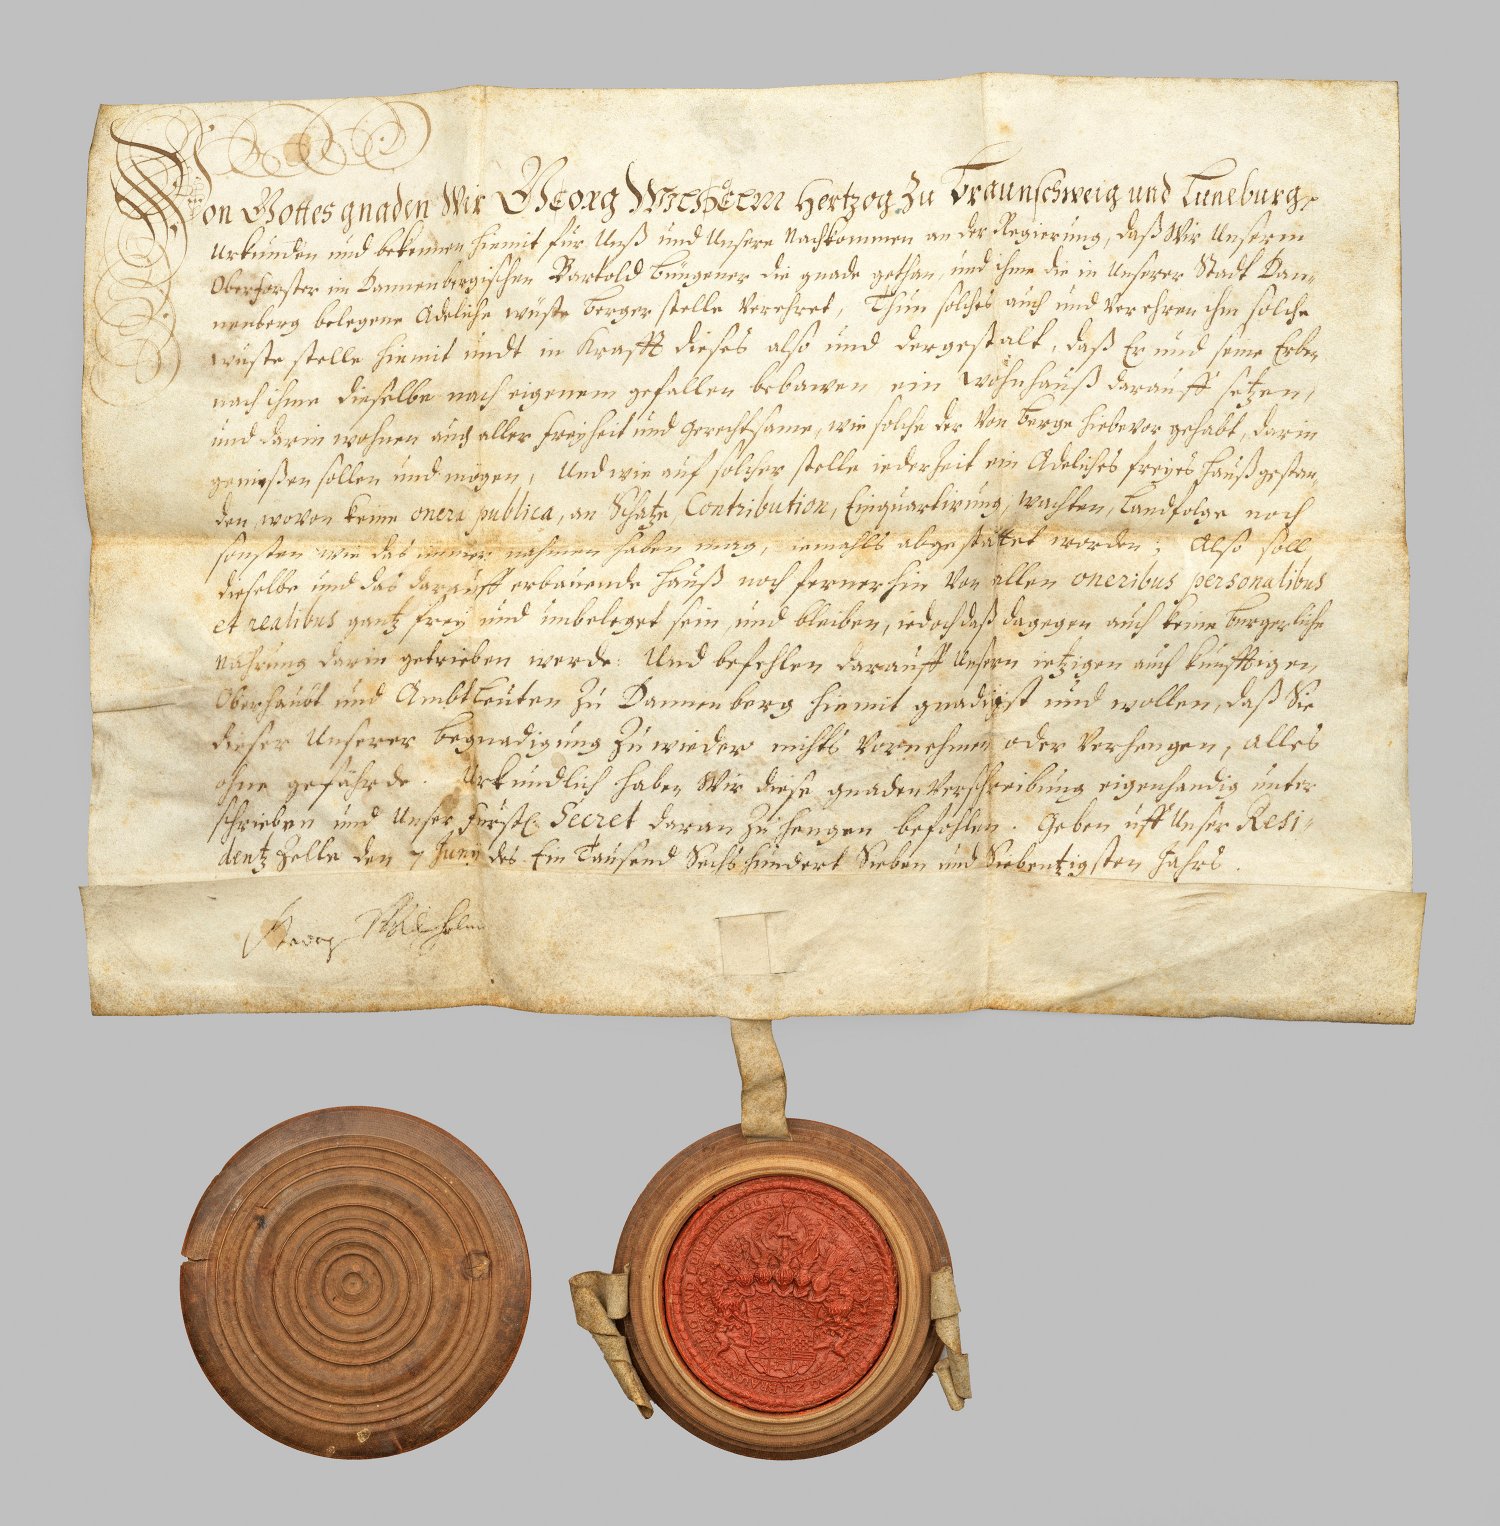 Von Gottes gnaden Wir Georg Wilhelm Hertzog Zu Braunschweig und Luneburg
Urkunden und bekennen hiemit für Unß und Unsere Nachkommen an der Regierung, daß Wir Unserm
Oberforster im Dannenbergischen Bartold Büngener die gnade gethan, und ihme die in Unserer Stadt Dan-
nenberg belegene Adeliche wüste Berger stelle verehret, Thun solches auch und verehren ihm solche
wüste stelle hiemit undt in Krafft dieses also und dergestalt, daß Er und seine Erben
nach ihme dieselbe nach eigenem gefallen bebawen ein wohnhauß darauff setzen,
und darin wohnen auch aller freyheit und Gerechtsame, wie solche der von Berge hiebevor gehabt, darin
genießen sollen und mögen, Und wie auf solcher stelle iederZeit ein Adeliches freyes Hauß gestan-
den, wovon keine onera publica, an Schatz, Contribution, Einquartirung, wachten, Landfolge noch
sonsten wie das immer nahmen haben mag, iemahls abgestattet worden; Also soll
dieselbe und das darauff erbauende Hauß noch fernerhin von allen oneribus personalibus
et realibus gantz frey und unbeleget sein und bleiben, iedoch daß dagegen auch keine burgerliche
Nahrung darin getrieben werde: Und befehlen darauff Unsern ietzigen auch künfftigen
Oberhaubt und Ambtleuten Zu Dannenberg hiemit gnädigst und wollen, daß Sie
dieser Unserer Begnadigung Zuwieder nichts vornehmen oder verhengen, alles
ohne gefährde. Urkundlich haben Wir diese gnadenverschreibung eigenhandig unter
schrieben und Unser Fürstl. Secret daran Zu hengen befohlen. Geben uff Unser Resi-
dentz Zelle den 7 Juny des Ein Tausend Sechs hundert Sieben und Siebentzigsten Jahrs.
Georg Wilhelm